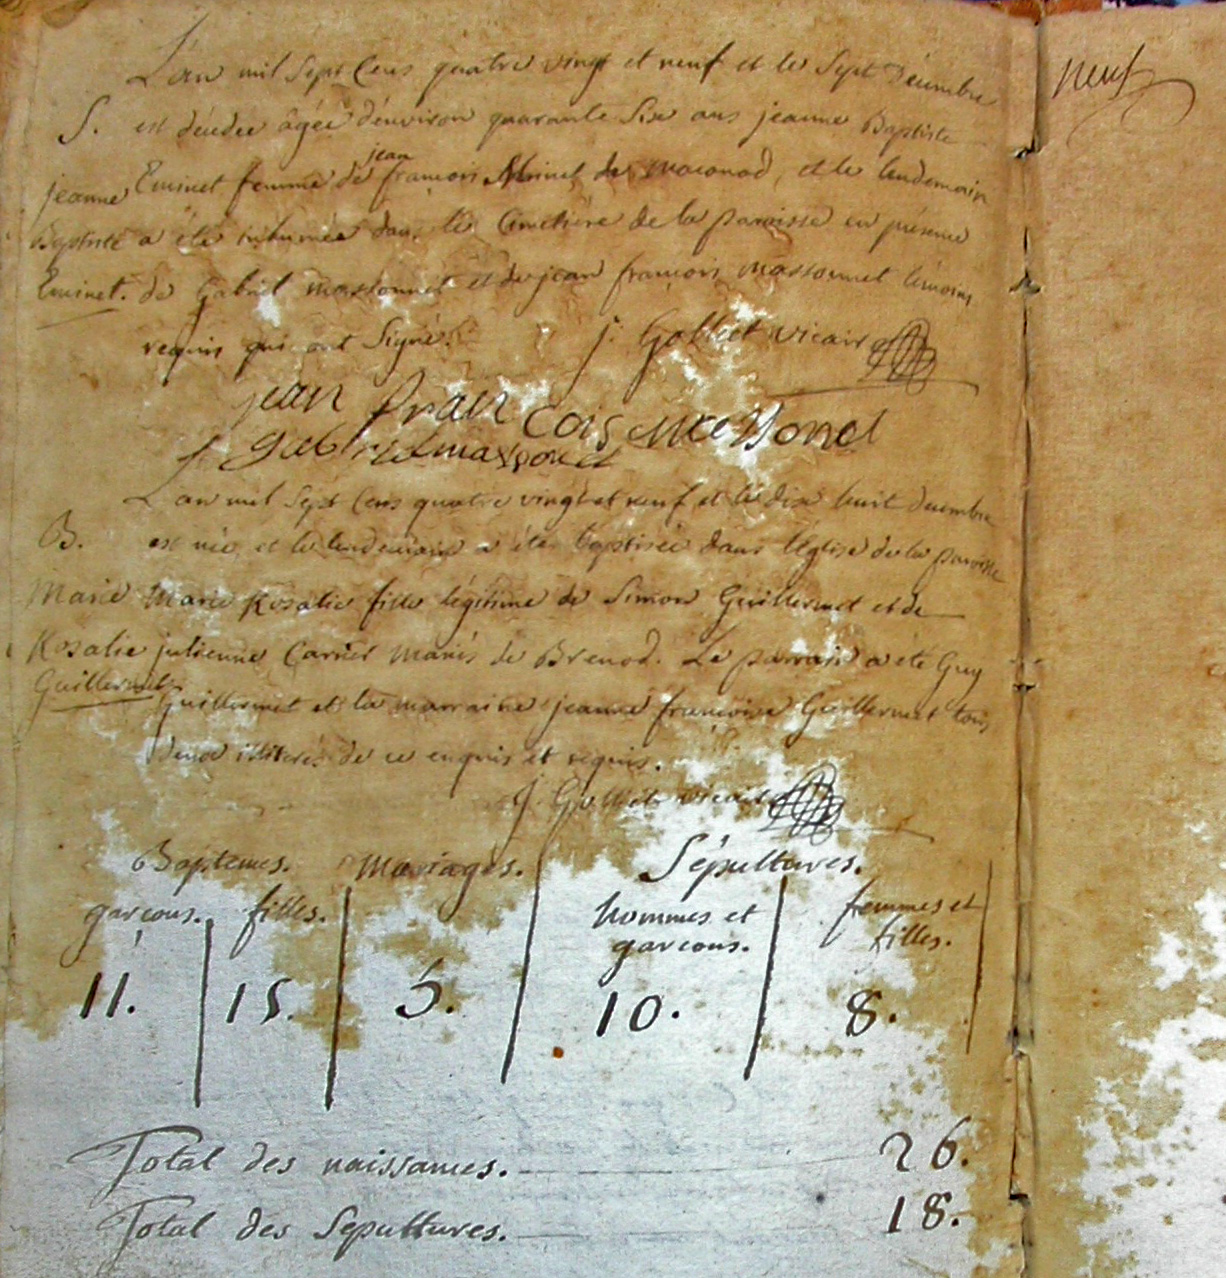 L'an mil Sept Cens quatre vingt et neuf et le Sept Décembre
S. est décédée âgée d'environ quarante Six ans jeanne Baptiste
jeanne Eminet femme de jean françois de maconod, et le lendemain
Baptiste a été inhumée dans le Cimetière de la paroisse en présence
Eminet. de Gabriel massonnet et de jean françois massonnet témoins
requis qui ont Signé. j. Gollet vicaire
jean fran cois massonet
gabriel massonet
L'an mil Sept Cens quatre vingt et neuf et le dix huit Décembre
B. est née et le lendemain a été baptisée dans l'église de la paroisse
Marie Marie Rosalie fille légitime de Simon Guillermet et de
Rosalie julienne Carrier mariés de Brenod. Le parrain a été Guy
Guillermet Guillermet et la marraine jeanne françoise Guillermet tous
deux illiterés de ce enquis et requis.
j. Gollet vicaire
Baptemes. Mariages. Sépultures.
garçons. filles. hommes et garçons. femmes et filles.
11. 15. 5. 10. 8.
Total des naissances. 26.
Total des Sepultures. 18.
neuf